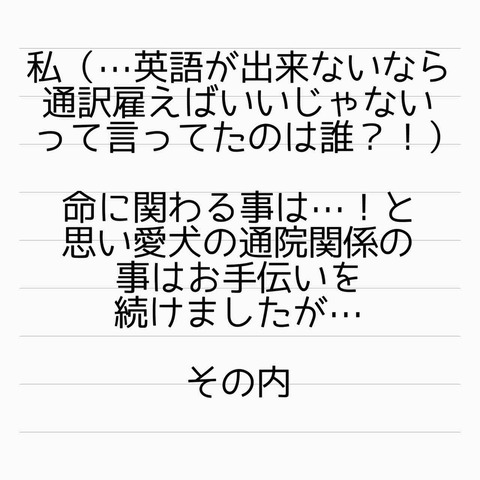 私（…英語が出来ないなら
通訳雇えばいいじゃない
って言ってたのは誰？！）
命に関わる事は…！と
思い愛犬の通院関係の
事はお手伝いを
続けましたが…
その内